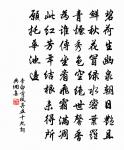 碧荷生幽泉朝日艷且
鮮秋花冒綠水密葉羅
青煙秀色空絕世馨香
為誰傳坐看飛霜滿凋
此紅芳年結根未得所
願托華池邊
李白古風五十九